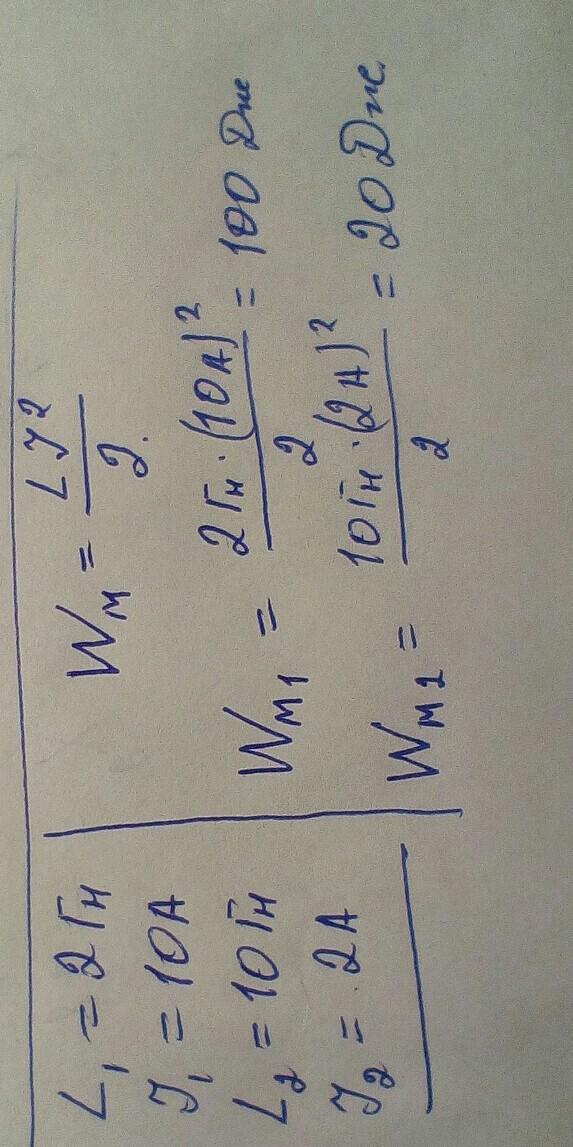 L₁ = 2 Гн
J₁ = 10 А
L₂ = 10 Гн
J₂ = 2 А
Wм = LJ²/2.
Wм₁ = 2 Гн · (10 А)²/2 = 100 Дж
Wм₂ = 10 Гн · (2 А)²/2 = 20 Дж.